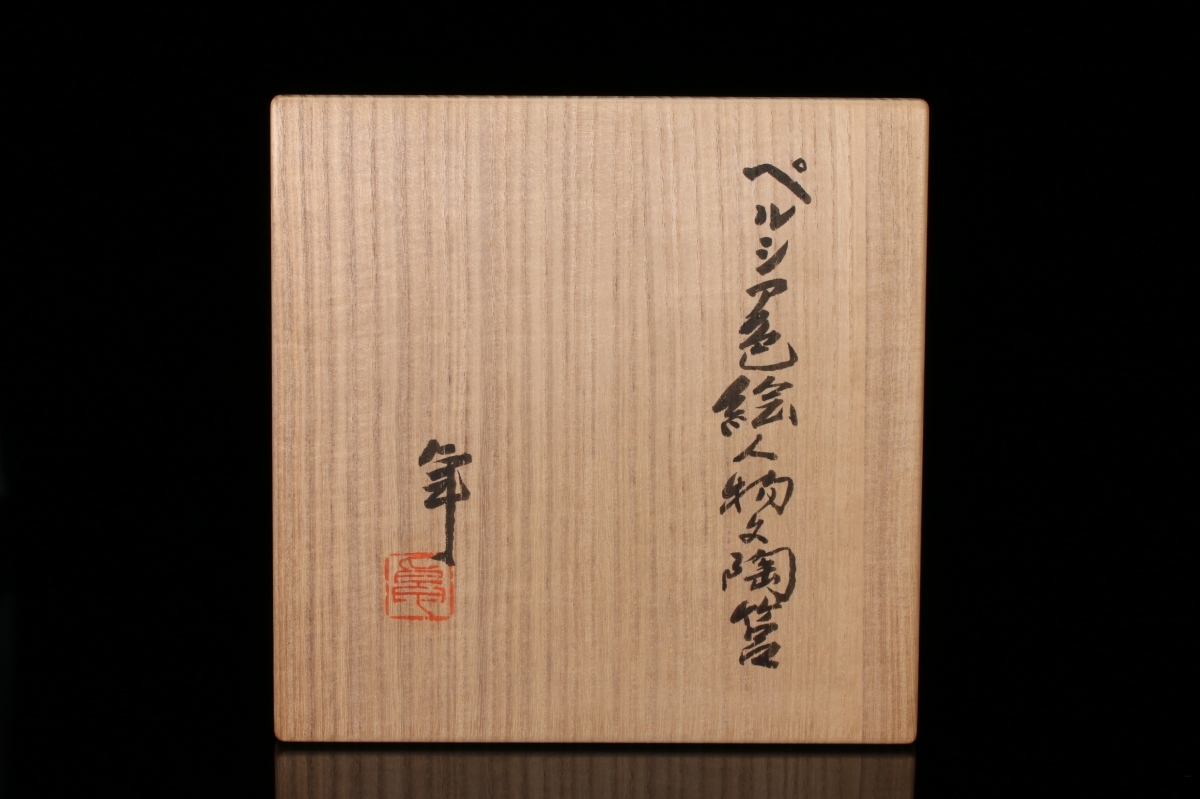 ペルシア色絵人物文陶筥